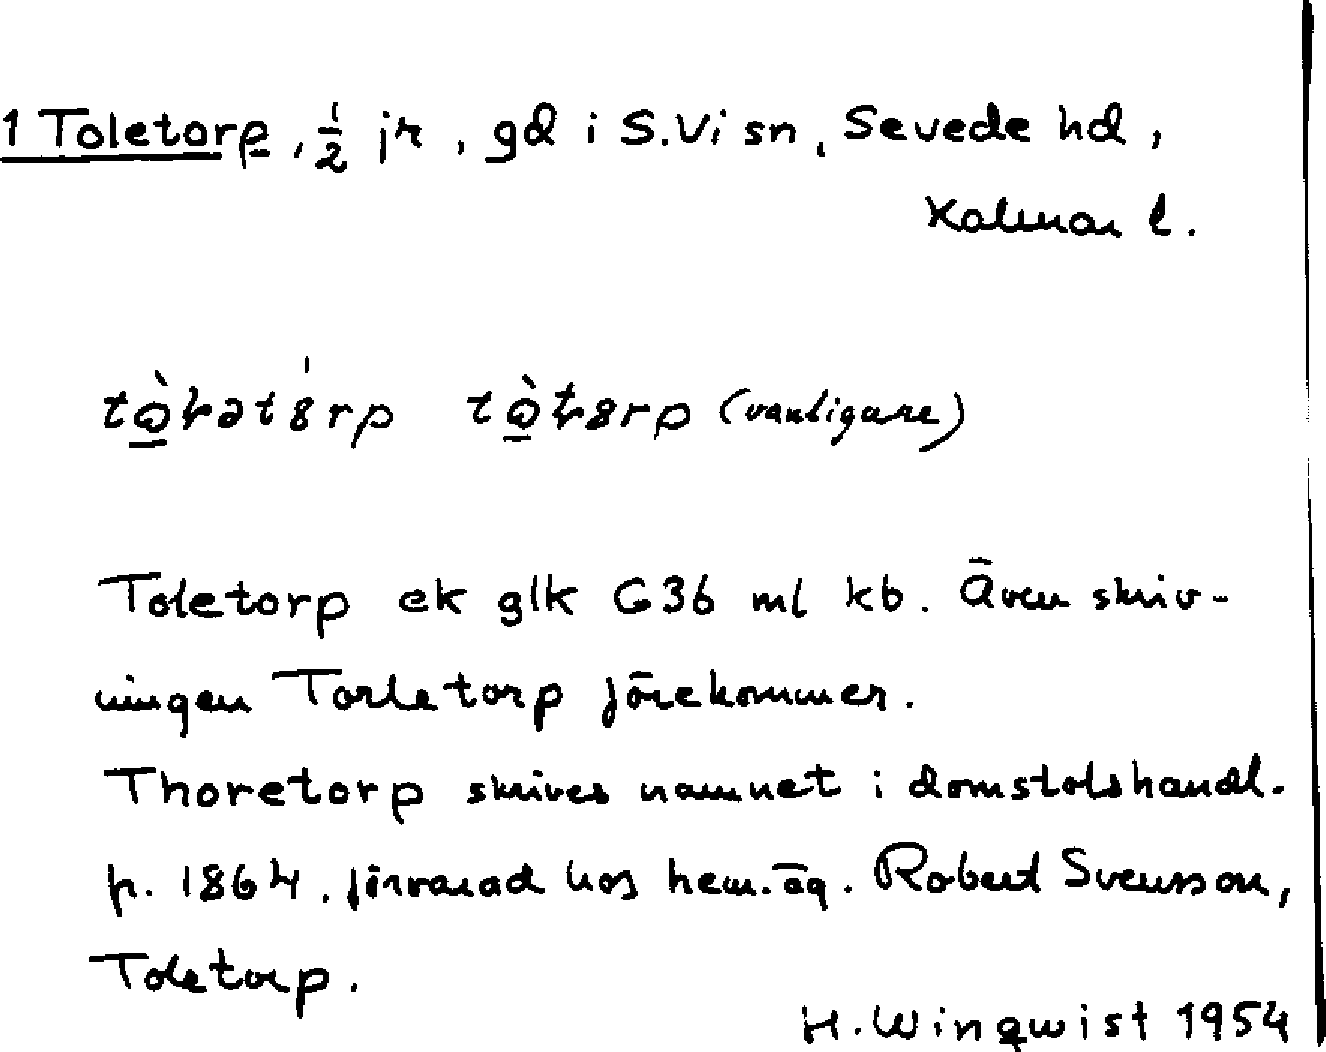 1 Toletorp, ½ jr, gd i S.Vi sn, Sevede hd,
Kalmar l.
(vanligare)
Toletorp ek glk G36 ml kb. Även skriv-
ningen Torletorp förekommer.
Thoretorp skrives namnet i domstolshandl.
fr. 1864, förvarad hos hem.äg. Robert Svensson,
Toletorp.
H. Winqwist 1954